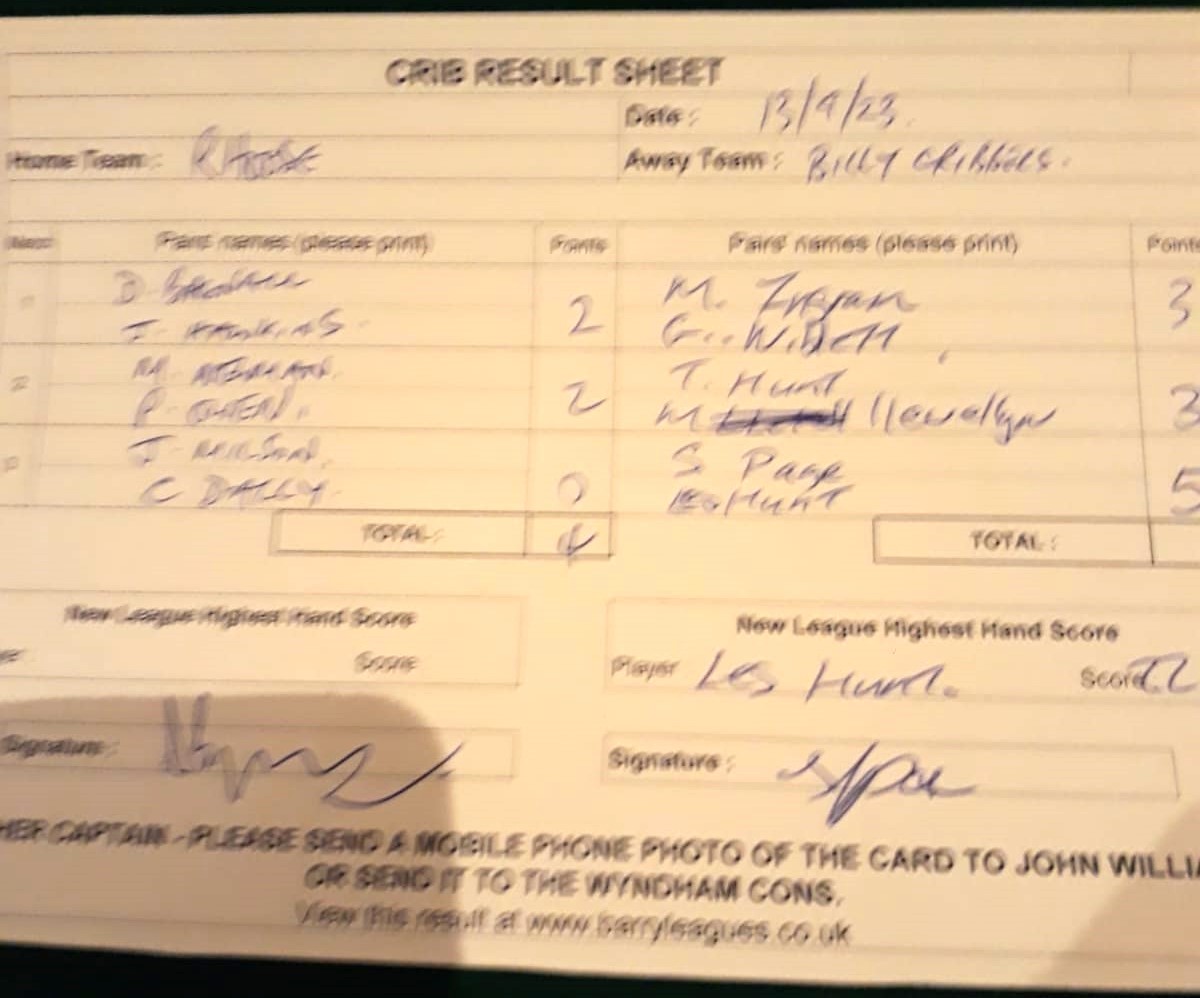 CRIB RESULT SHEET
Date : 13/9/23.
Home Team : RHOOSE
Away Team : BILLY CRIBBERS.
Pairs names (please print) Points Pairs names (please print) Points
D 2 M. 3
J. HAWKINS G.
M. T. Hunt
P. OWEN. 2 M Llewellyn 3
J. S Page
C DALLY 0 Les Hunt 5
TOTAL : 4 TOTAL :
New League Highest Hand Score
New League Highest Hand Score
Score
Player Les Hunt. Score 22
Signature :
Signature :
CAPTAIN - PLEASE SEND A MOBILE PHONE PHOTO OF THE CARD TO JOHN WILLIA
OR SEND IT TO THE WYNDHAM CONS.
View this result at www.barryleagues.co.uk